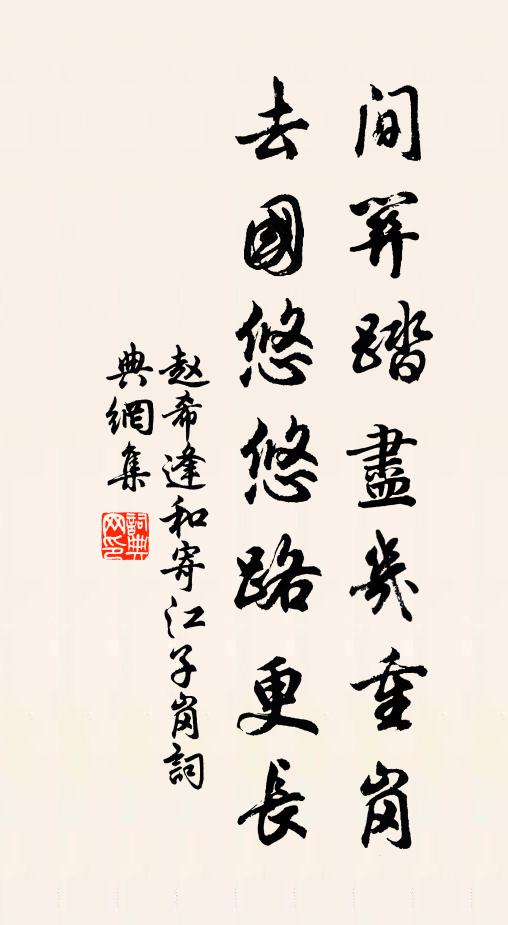 间筭踏盡幾重岗
去國悠悠路更長
赵希逢和寄江子岗詞
典網集
詞典
网印